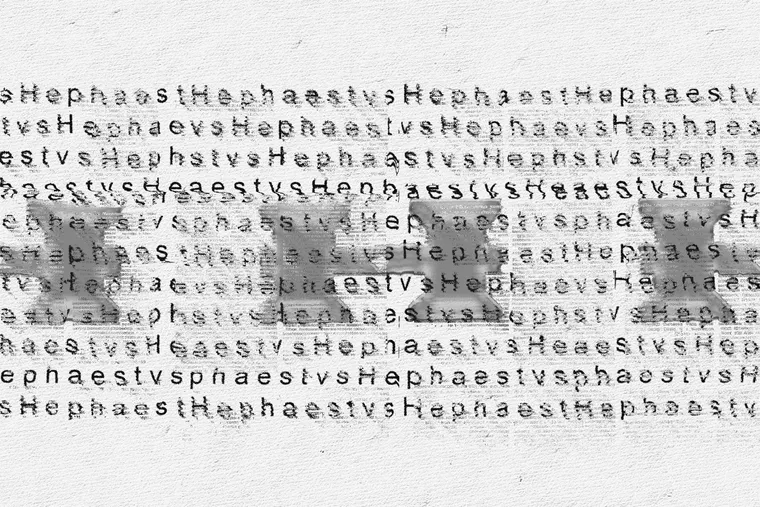 sHephaestHephaestvsHephaestHephaestv
tvsHephaevsHephaestvsHephaevsHephaes
estvsHephstvsHephaastvsHephstvsHepha
haestvsHeaestvsHephaestvsHeaestvsHep
ephaestvsphaestvsHephaestvsphaestvsH
sHephaestHephaestvsHephaestHephaestv
tvsHephaevsHephaestvsHephaevsHephaes
estvsHephstvsHephaestvsHephstvsHepha
haestvsHeaestvsHephaestvsHeaestvsHep
ephaestvsphaestvsHephaestvsphaestvsH
sHephaestHephaestvsHephaestHephaestv